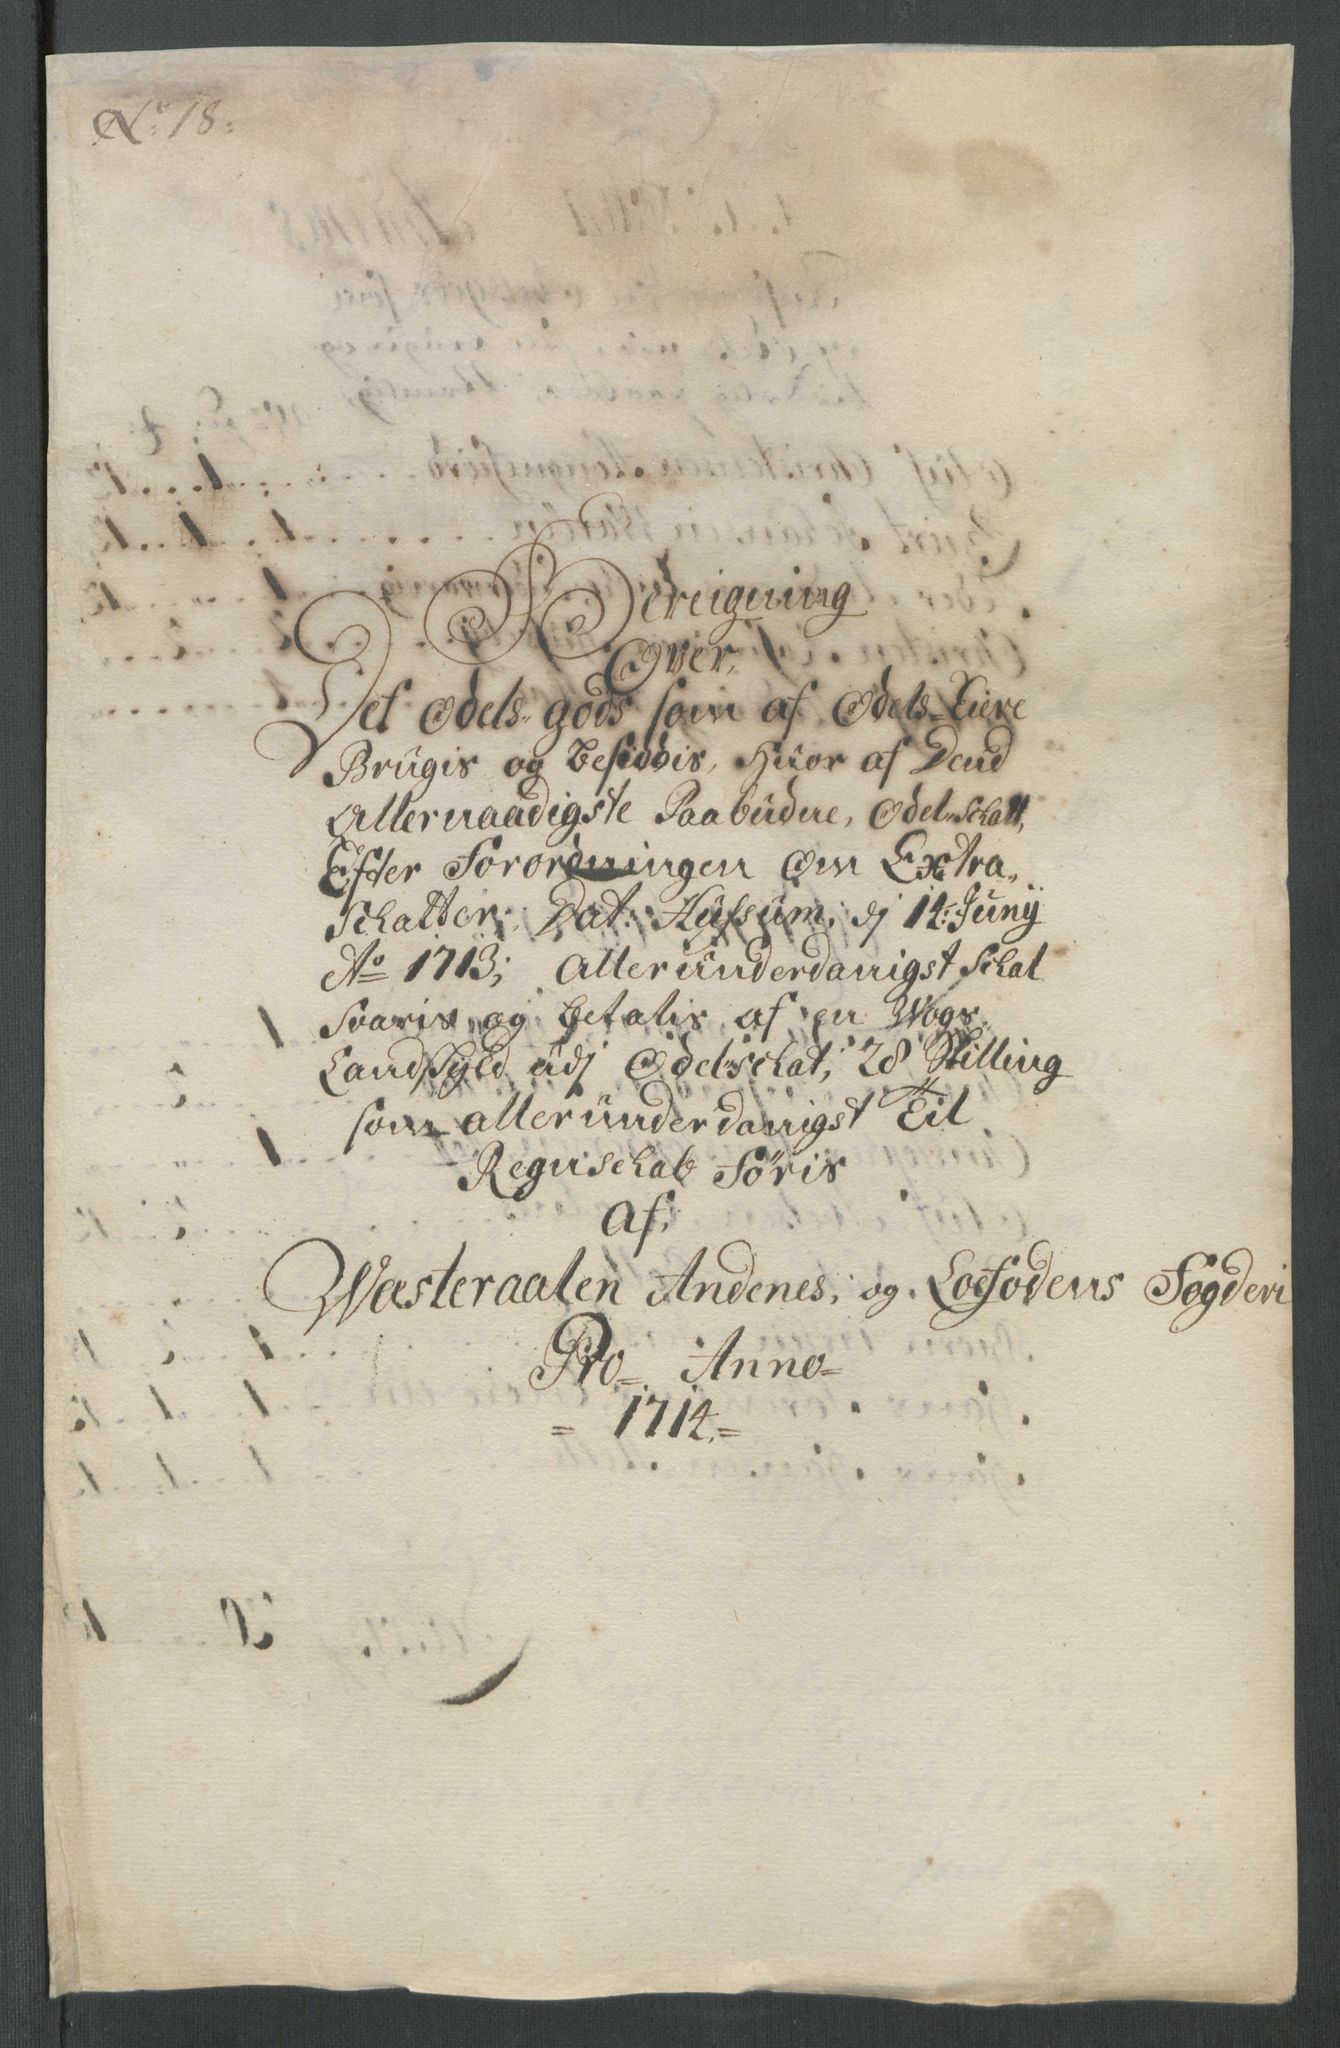 No: 18:
Bereigning
Over,
Det Odels-gods som af Odels-Eiere
Brugis og besiddis, Huor af Dend
Allernaadigste Paabudne, Odel-schatt,
Efter Forordningen Om Extra-
schatter, Dat: Hussum, dj 14: Junij
Ao 1713; Allerunderdanigst schal
svaris og betalis af en Wogs
Landskyld udj Odelschat, 28 skilling
som allerunderdanigst Til
Regnschab Føris
af,
Wæsteraalen Andenes, og Loefodens Fogderi
Pro Anno
= 1714 =